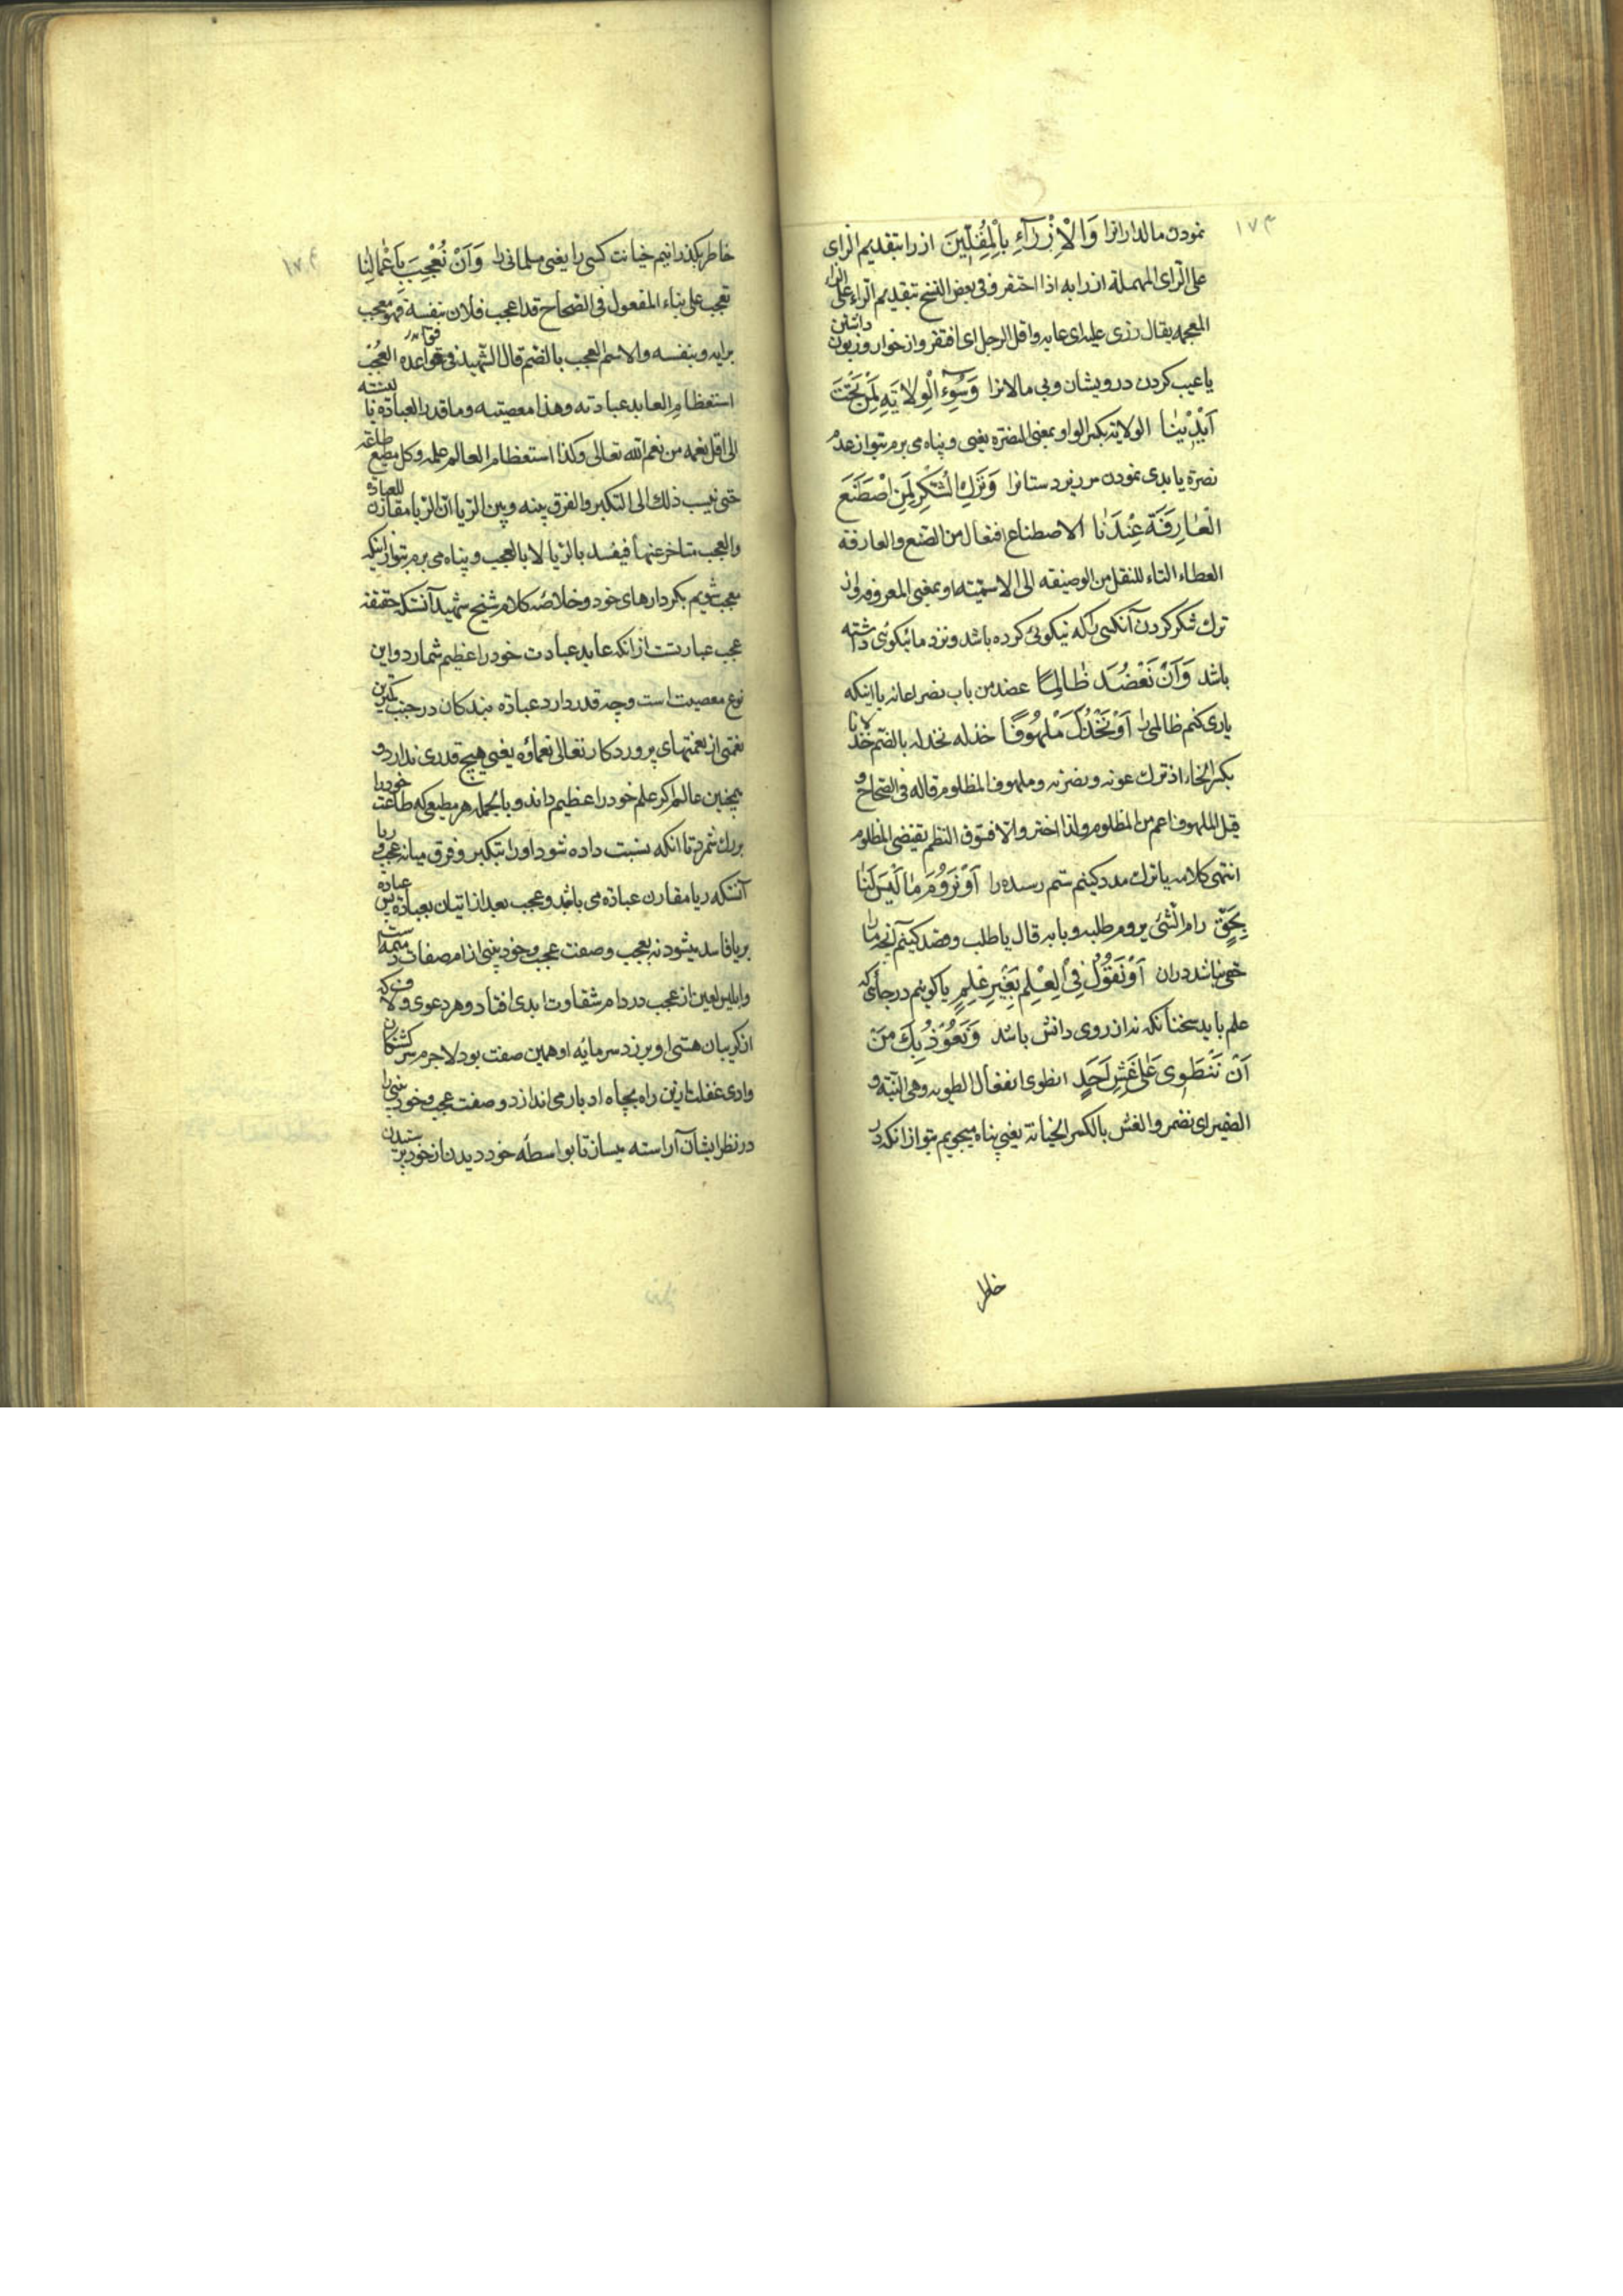 ۱۷۳
نمودن مالدارانرا وَالْاِزْرَآءِ بِالْمُقِلّٖينَ ازرا بتقدیم الزای
علی الرای المهملة ازرا به اذا احتقر و فی بعض النسخ بتقدیم الراء علی الزاء
المعجمه یقال رزی علیه ای عابه و اقل الرجل ای افتقر و از خوار و زبون داشتن
یا عیب کردن درویشان و بی مالانرا وَسُوٓءِ الْوِلٰايَةِ لِمَنْ تَحْتَ
اَيْدٖينٰا الولایة بکسر الواو بمعنی النصرة یعنی و پناه می برم بتو از عدم
نصرة یا بدی نمودن مر زیردستانرا وَتَرْكِ الشُّكْرِ لِمَنِ اصْطَنَعَ
الْعٰارِفَةَ عِنْدَنٰا الاصطناع افتعال من الصنع و العارفة
العطاء التاء للنقل من الوصفیه الی الاسمیته او بمعنی المعروفه و از
ترك شکر کردن آنکسی را که نیکوئی کرده باشد و نزد ما نیکوئی داشته
باشد وَاَنْ نَعْضُدَ ظٰالِمًا عضد من باب نصر اعانه یا اینکه
یاری کنم ظالمی را اَوْ نَخْذُلَ مَلْهُوفًا خذله یخذله بالضم خذلانا
بکسر الخاء اذ ترك عونه و نصرته و ملهوف المظلوم قاله فی الصحاح و
قیل الملهوف اعم من المظلوم ولذا اختر والا فسوق النظم یقتضی المظلوم
انتهی کلامه یا ترك مدد کنیم ستم رسیده را اَوْ نَرُومَ مٰا لَيْسَ لَنٰا
بِحَقٍّ رام الشئ یروم طلبه و بابه قال یا طلب و قصد کنیم آنچه ما را
حقی نباشد دران اَوْ نَقُولَ فِي الْعِلْمِ بِغَيْرِ عِلْمٍ یا کوییم در جائی که
علم باید سخنانکه نه از روی دانش باشد وَنَعُوذُ بِكَ مِنْ
اَنْ نَنْطَوِىَ عَلٰى غِشِّ اَحَدٍ انطوی انفعال الطویه وهی النیة و
الضمیر ای نضمر و الغش بالکسر الخیانة یعنی پناه میجویم بتو ازانکه در
خاطر
۱۷۴
خاطر بکذرانیم خیانت کسی را یعنی مسلمانی را وَاَنْ نُعْجَبَ بِاَعْمٰالِنٰا
نعجب علی بناء المفعول فی الصحاح قد اعجب فلان بنفسه فهو معجب
برایه و بنفسه والاسم العجب بالضم قال الشهید فی قواعده العجب
استعظام العابد عبادته وهذا معصیته وما قدر العباده بالنسبته
الی اقل نعمه من نعم الله تعالی وکذا استعظام العالم علمه وکل مطیع طاعته
حتی نیسب ذلك الی التکبر والفرق بینه وبین الریا ان الریا مقارن للعباده
والعجب متاخر عنها فیفسد بالریا لا بالعجب و پناه می برم بتو از اینکه
معجب شویم بکردارهای خود و خلاصۀ کلام شیخ شهید آنستکه حقیقة
عجب عبارتست از انکه عابد عبادت خود را عظیم شمارد و این
نوع معصیت است و چه قدر دارد عبادة بندکان در جنب کمترین
نعمتی از نعمتهای پروردکار تعالی نعماؤه یعنی هیچ قدری ندارد و
همچنین عالم اکر علم خود را عظیم داند و بالجمله هر مطیعی که طاعت خود را
بزرك شمرد تا انکه نسبت داده شود او را بتکبر و فرق میانه عجب و ریا
آنستکه ریا مقارن عبادة می باشد و عجب بعد از اتیان بعبادة پس عبادة
بریا فاسد میشود نه بعجب و صفت عجب و خود بینی از ام صفات ذمیمه است
و ابلیس لعین از عجب در دام شقاوت ابدی افتاد و هر دعوی و لاف که
از کریبان هستی او برزد سرمایه او همین صفت بود لاجرم سرکشتکان
وادی غفلت را زین راه بچاه ادبار می اندازد و صفت عجب و خود بینی را
در نظر ایشان آراسته میسازد تا بواسطه خود دیدن از خود پرستیدن